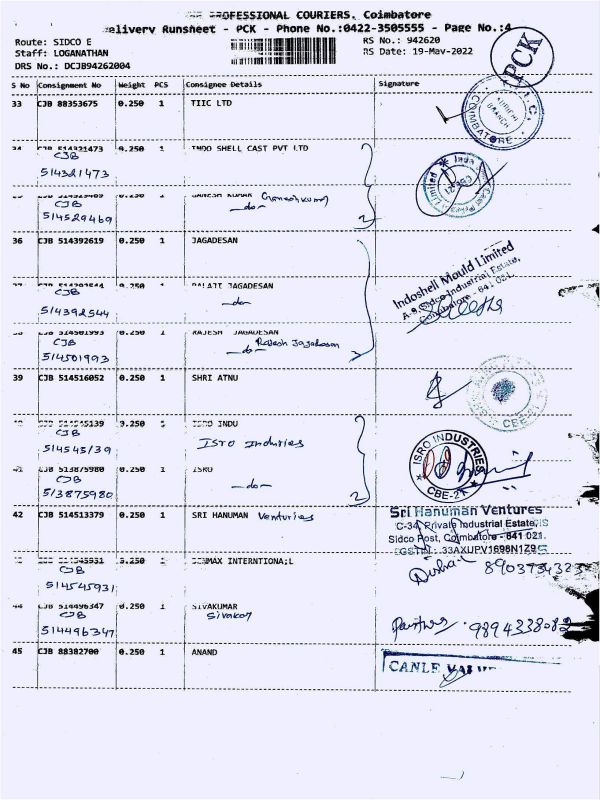 PROFESSIONAL COURIERS. Coimbatore
Delivery Runsheet - PCK - Phone No.:0422-3505555 - Page No.:4
Route: SIDCO E
RS No.: 942620
Staff: LOGANATHAN
RS Date: 19-May-2022
DRS No.: DCJB94262004
PCK
S No Consignment No Weight PCS Consignee Details Signature
33 CJB 88353675 0.250 1 TIIC LTD
COIMBATORE
BRANCH
34 CJB 514321473 0.250 1 INDO SHELL CAST PVT LTD
CJB
514321473
0.250 1 GANESH KUMAR Ganeshkumar
CJB
514529469
-do-
2
36 CJB 514392619 0.250 1 JAGADESAN
Indoshell Mould Limited
A-9, Sidco Industrial Estate,
Coimbatore - 641 021.
37 CJB 514392544 0.250 1 BALAJI JAGADESAN
CJB
514392544
-do-
CJB 514501993 0.250 1 RAJESH JAGADESAN
CJB
Rajesh Jagadesan
514501993
-do-
39 CJB 514516052 0.250 1 SHRI ATNU
CBE-21
40 CJB 514545139 0.250 1 ISRO INDU
CJB
514545139
Isro Indutries
ISRO INDUSTRIES
CBE-21
41 CJB 513875980 0.250 1 ISRO
CJB
513875980
-do-
2
42 CJB 514513379 0.250 1 SRI HANUMAN Venturies
Sri Hanuman Ventures
C-34, Private Industrial Estate,
Sidco Post, Coimbatore - 641 021.
GSTIN : 33AXUPV1698N1Z9
CJB 514545931 0.250 1 INTERNTIONA;L
CJB
514545931
8903734323
44 CJB 514496347 0.250 1 SIVAKUMAR
CJB
514496347
9894338082
45 CJB 88382700 0.250 1 ANAND
CANLE VALVE